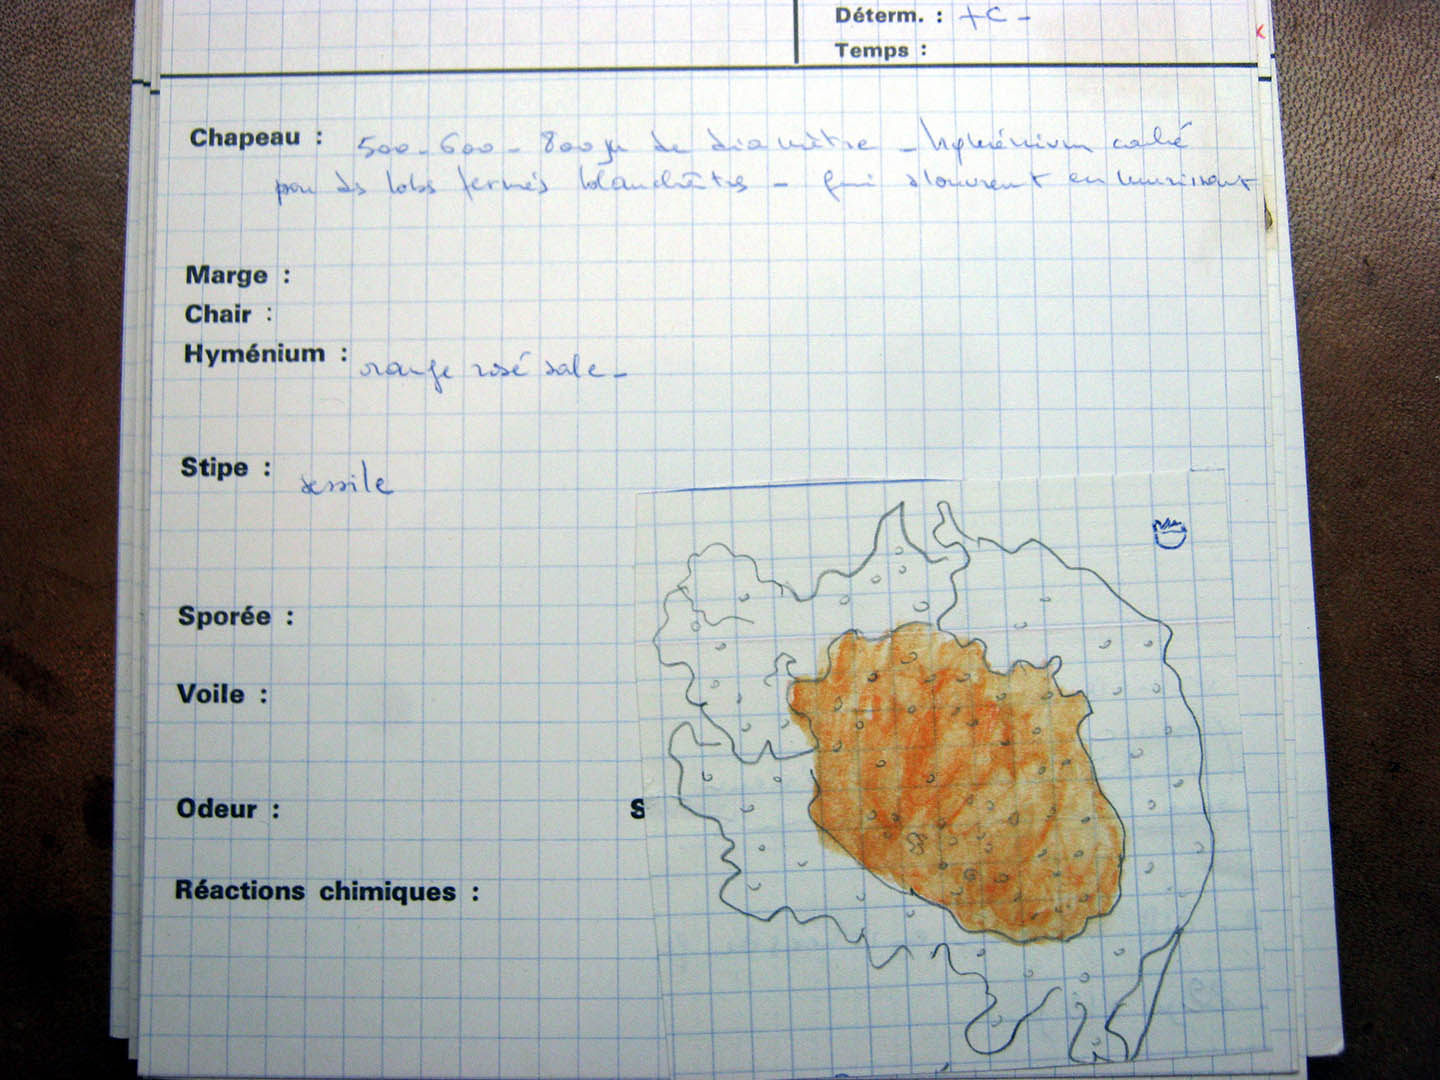 Déterm. : +C -
Temps :
Chapeau : 500 - 600 - 800 µ de diamètre - Hyménium caché
par des lobes fermés blanchâtres - qui s'ouvrent en murissant
Marge :
Chair :
Hyménium : orange rosé sale -
Stipe : sessile
Sporée :
Voile :
Odeur : S
Réactions chimiques :